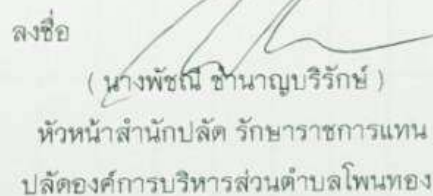 ลงชื่อ
( นางพัชณี ชำนาญบริรักษ์ )
หัวหน้าสำนักปลัด รักษาราชการแทน
ปลัดองค์การบริหารส่วนตำบลโพนทอง